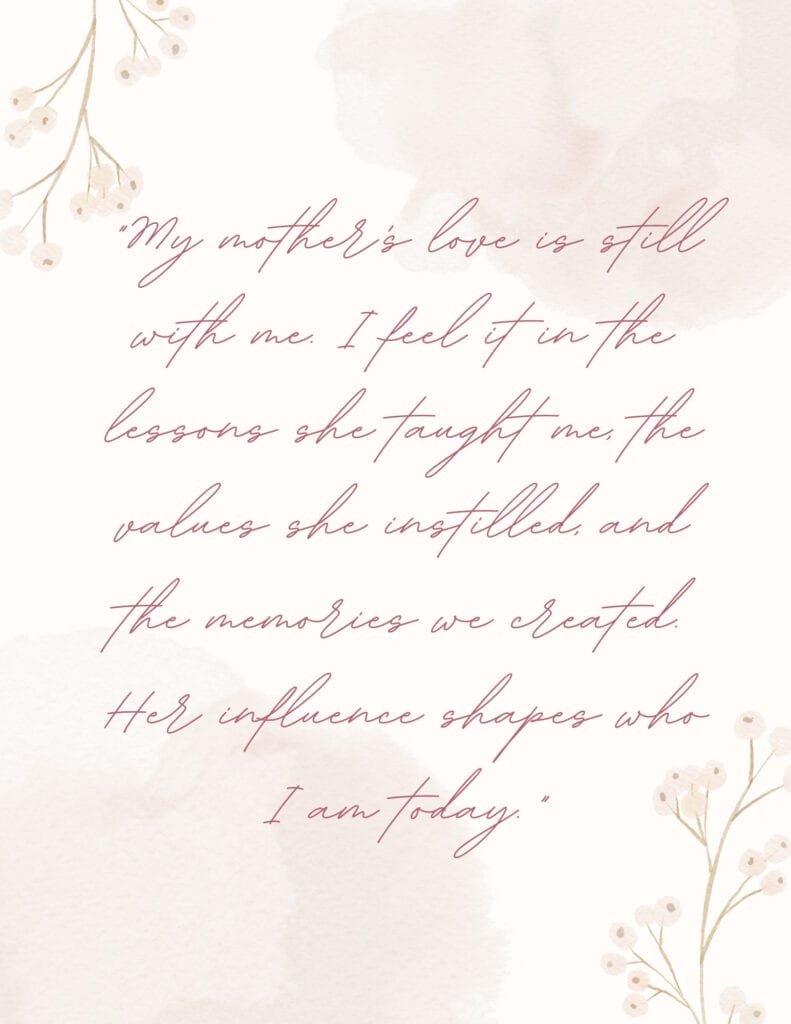 "My mother's love is still
with me. I feel it in the
lessons she taught me, the
values she instilled, and
the memories we created.
Her influence shapes who
I am today. "